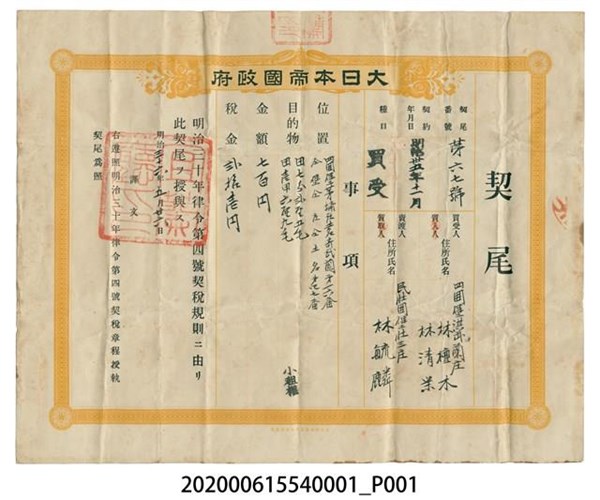 大日本帝國政府
契尾
契尾番號
第六七號
契約年月日
明治卅五年十一月
種目
買受
買受人
買入人
住所氏名
四圍堡淇武蘭庄
林檀木
林清業
賣渡人
質取人
住所氏名
民壯圍堡壯三庄
林毓麟
事項
位置
目的物
小租權
金額
七百円
税金
貳拾壹円
明治三十年律令第四號契税規則ニ由リ
此契尾ヲ授與ス
明治三十六年五月廿二日
譯文
右遵照明治三十年律令第四號契税章程授執
契尾爲照
202000615540001_P001